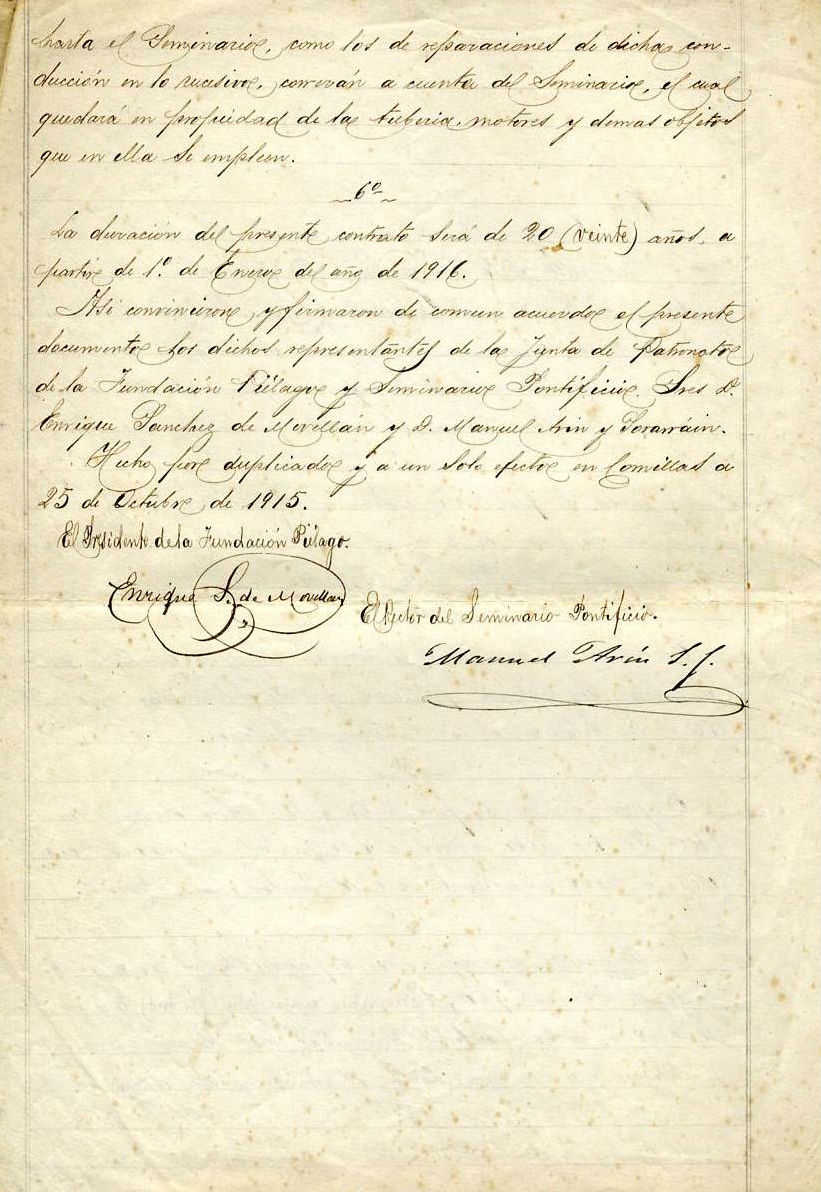 hasta el Seminario, como los de reparaciones de dicha con-
ducción en lo sucesivo, correrán a cuenta del Seminario, el cual
quedará en propiedad de la tuberia, motores y demas objetos
que en ella se empleen.
6º
La duración del presente contrato será de 20 (veinte) años, a
partir de 1º. de Enero del año de 1916.
Asi convinieron y firmaron de comun acuerdo el presente
documento los dichos representantes de la Junta de Patronato
de la Fundación Piélago y Seminario Pontificio. Sres D.
Enrique Sanchez de Movellán y D. Manuel Arin y Sorarráin.
Hecho por duplicado y a un solo efecto en Comillas a
25 de Octubre de 1915.
El Presidente de la Fundación Piélago.
Enrique S. de Movellan
El Rector del Seminario Pontificio.
Manuel Arín S.J.